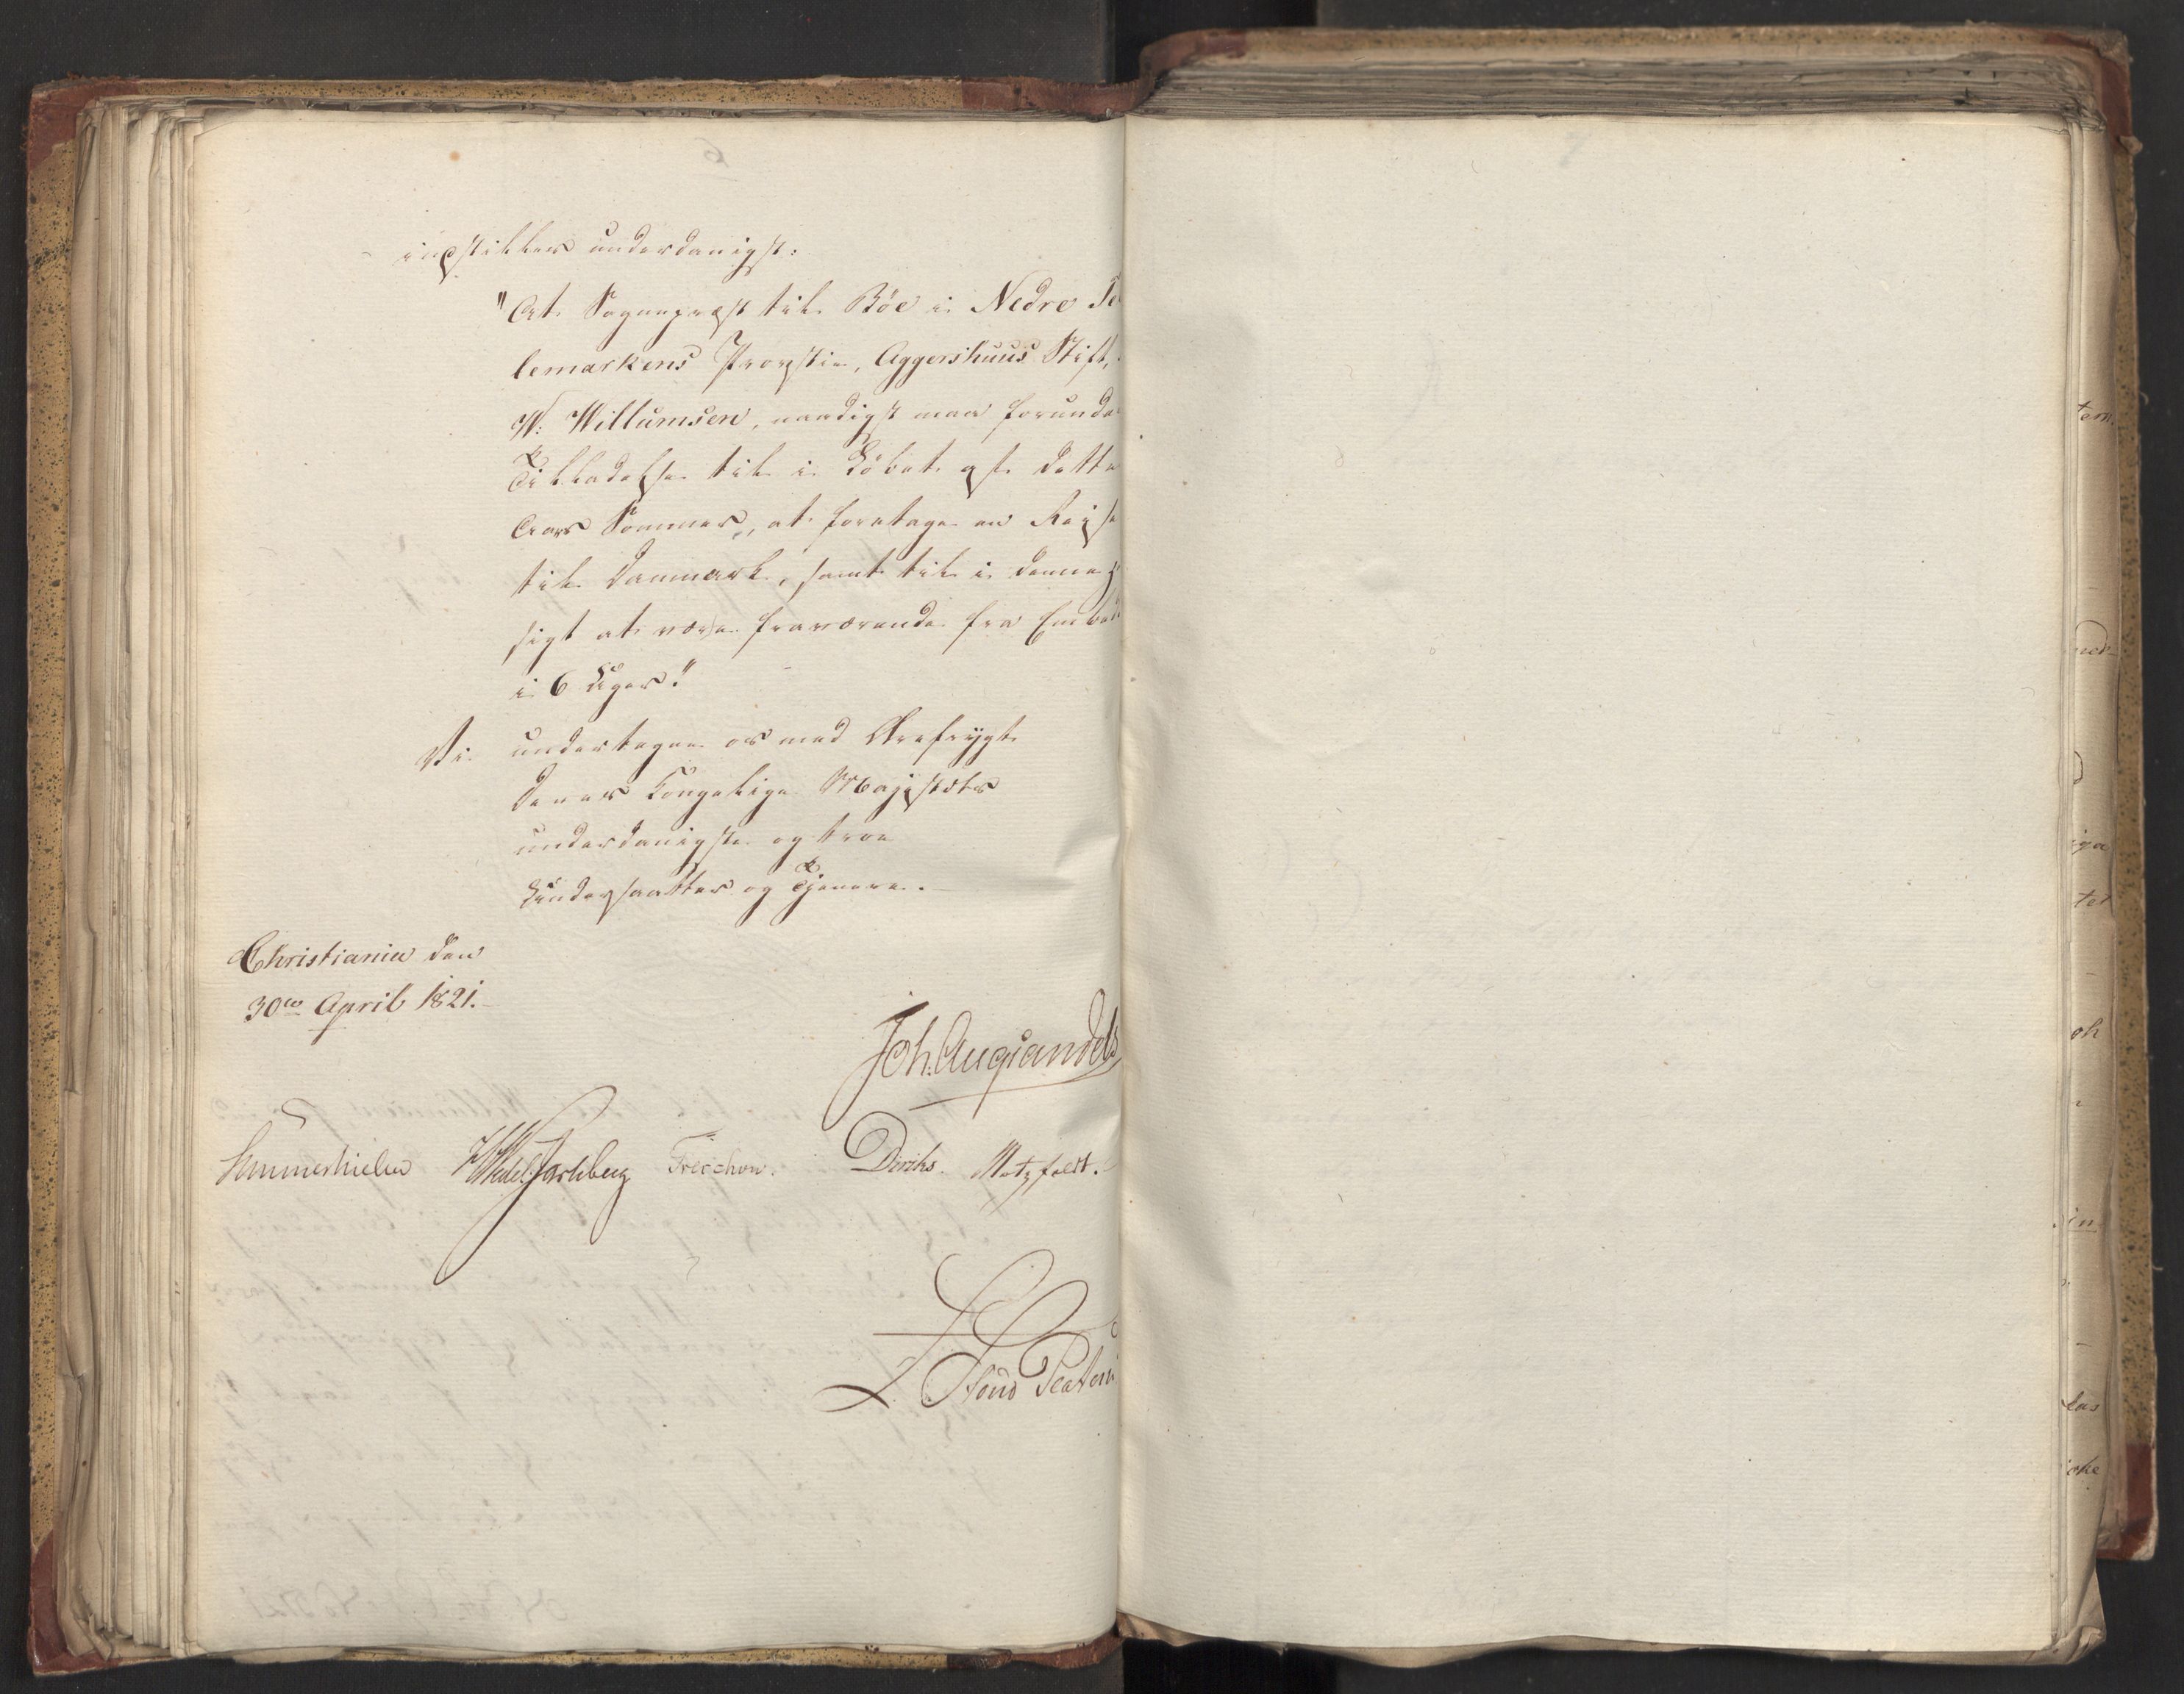 indstilles underdanigst:
"At Sogneprest til Böe i Nedre Te
lemarkens Provstie, Aggershuus Stift,
W: Willumsen, naadigst maa forunde
Tilladelse til i Löbet af dette
Aars Sommer, at foretage en Reise
til Danmark, samt til i denne Hen
sigt at være fraværende fra Embed
i 6 Uger."
Vi undertegne os med Ærefrygt
Deres Kongelige Majestæts
underdanigste og troe
Undersaatter og Tjenere.
Christiania den
30te April 1821.
Joh. Aug Sandels
Sommerhielm Wedel Jarlsberg Treschow. Diriks. Motzfeldt.